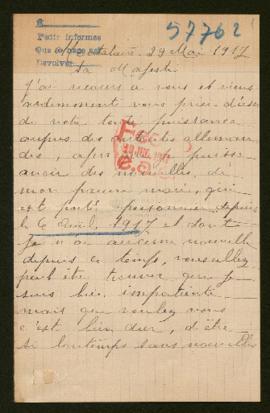 57762
Pedir informes
que se hago saber
Devolver
29 Mai 1917
Sa Majesté
J'ai recours à vous et viens
ardemment vous prier d'user
de votre haute puissance
auprès des autorités alleman
des afin que je puisse
avoir des nouvelles de
mon pauvre mari, qui
est porté personne depuis
le 6 Avril 1917 et dont
je n'ai aucune nouvelle
depuis ce temps, vous allez
peut être trouver que je
suis bien impatiente
mais que voulez vous
c'est bien dur, d'être
si longtemps sans nouvelles